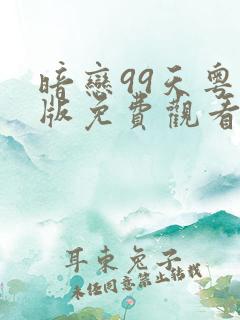 暗戀99天粵
版免費觀看
耳東兔子
未经同意禁止转载